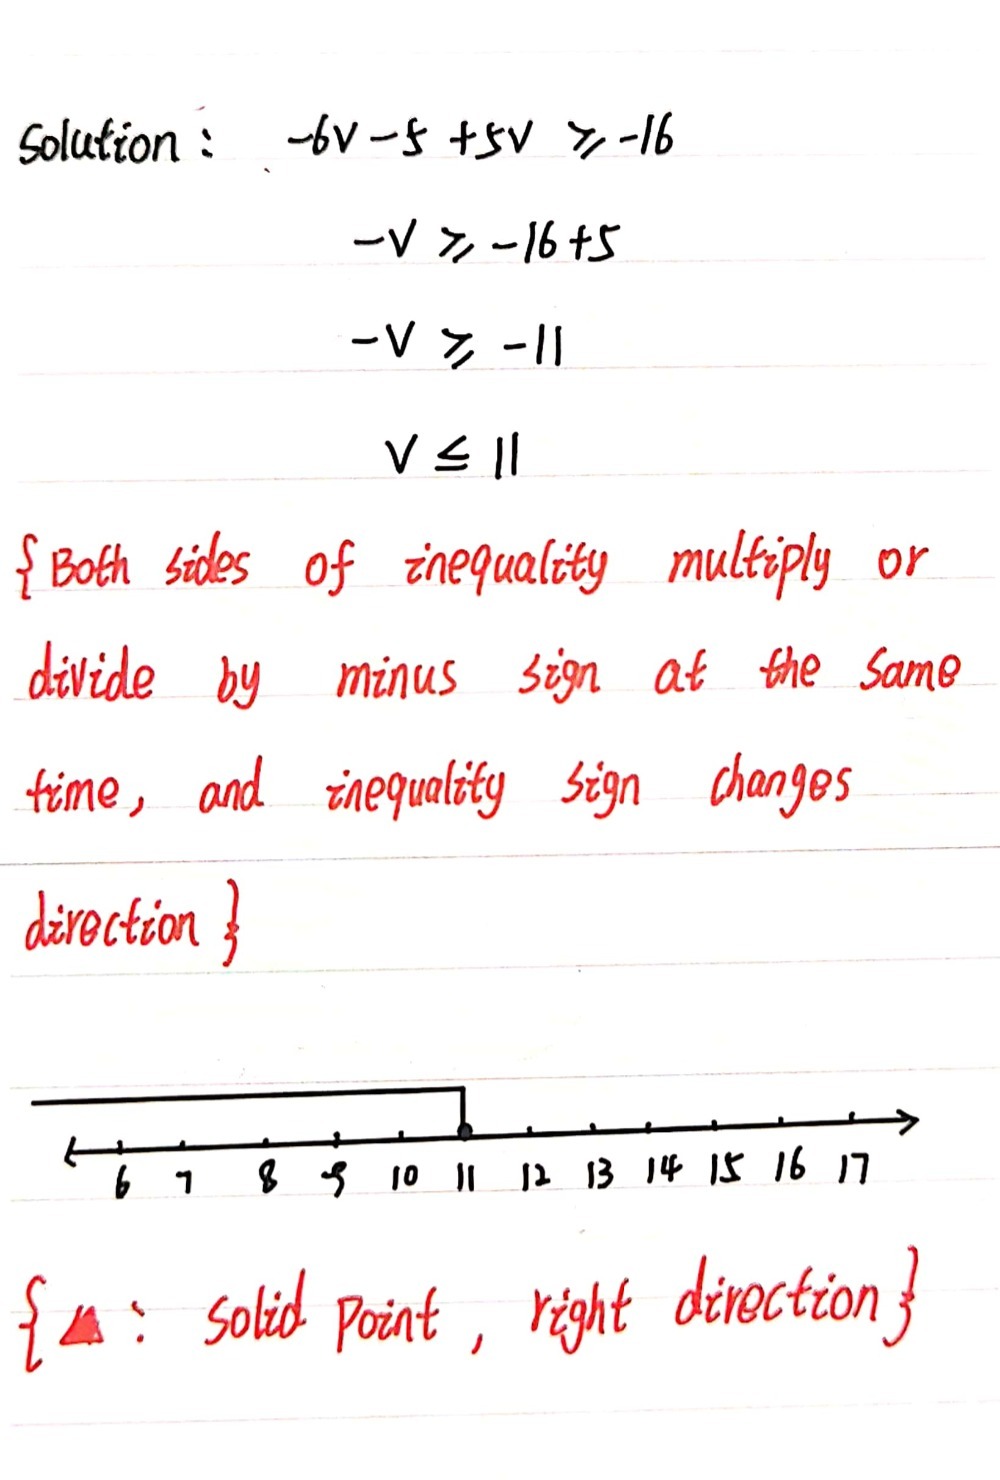 Solution: -6v-5+5v ⩾ -16
-v ⩾ -16+5
-v ⩾ -11
v ≤ 11
{Both sides of inequality multiply or
divide by minus sign at the same
time, and inequality sign changes
direction}
6 7 8 9 10 11 12 13 14 15 16 17
{▲: solid point, right direction}